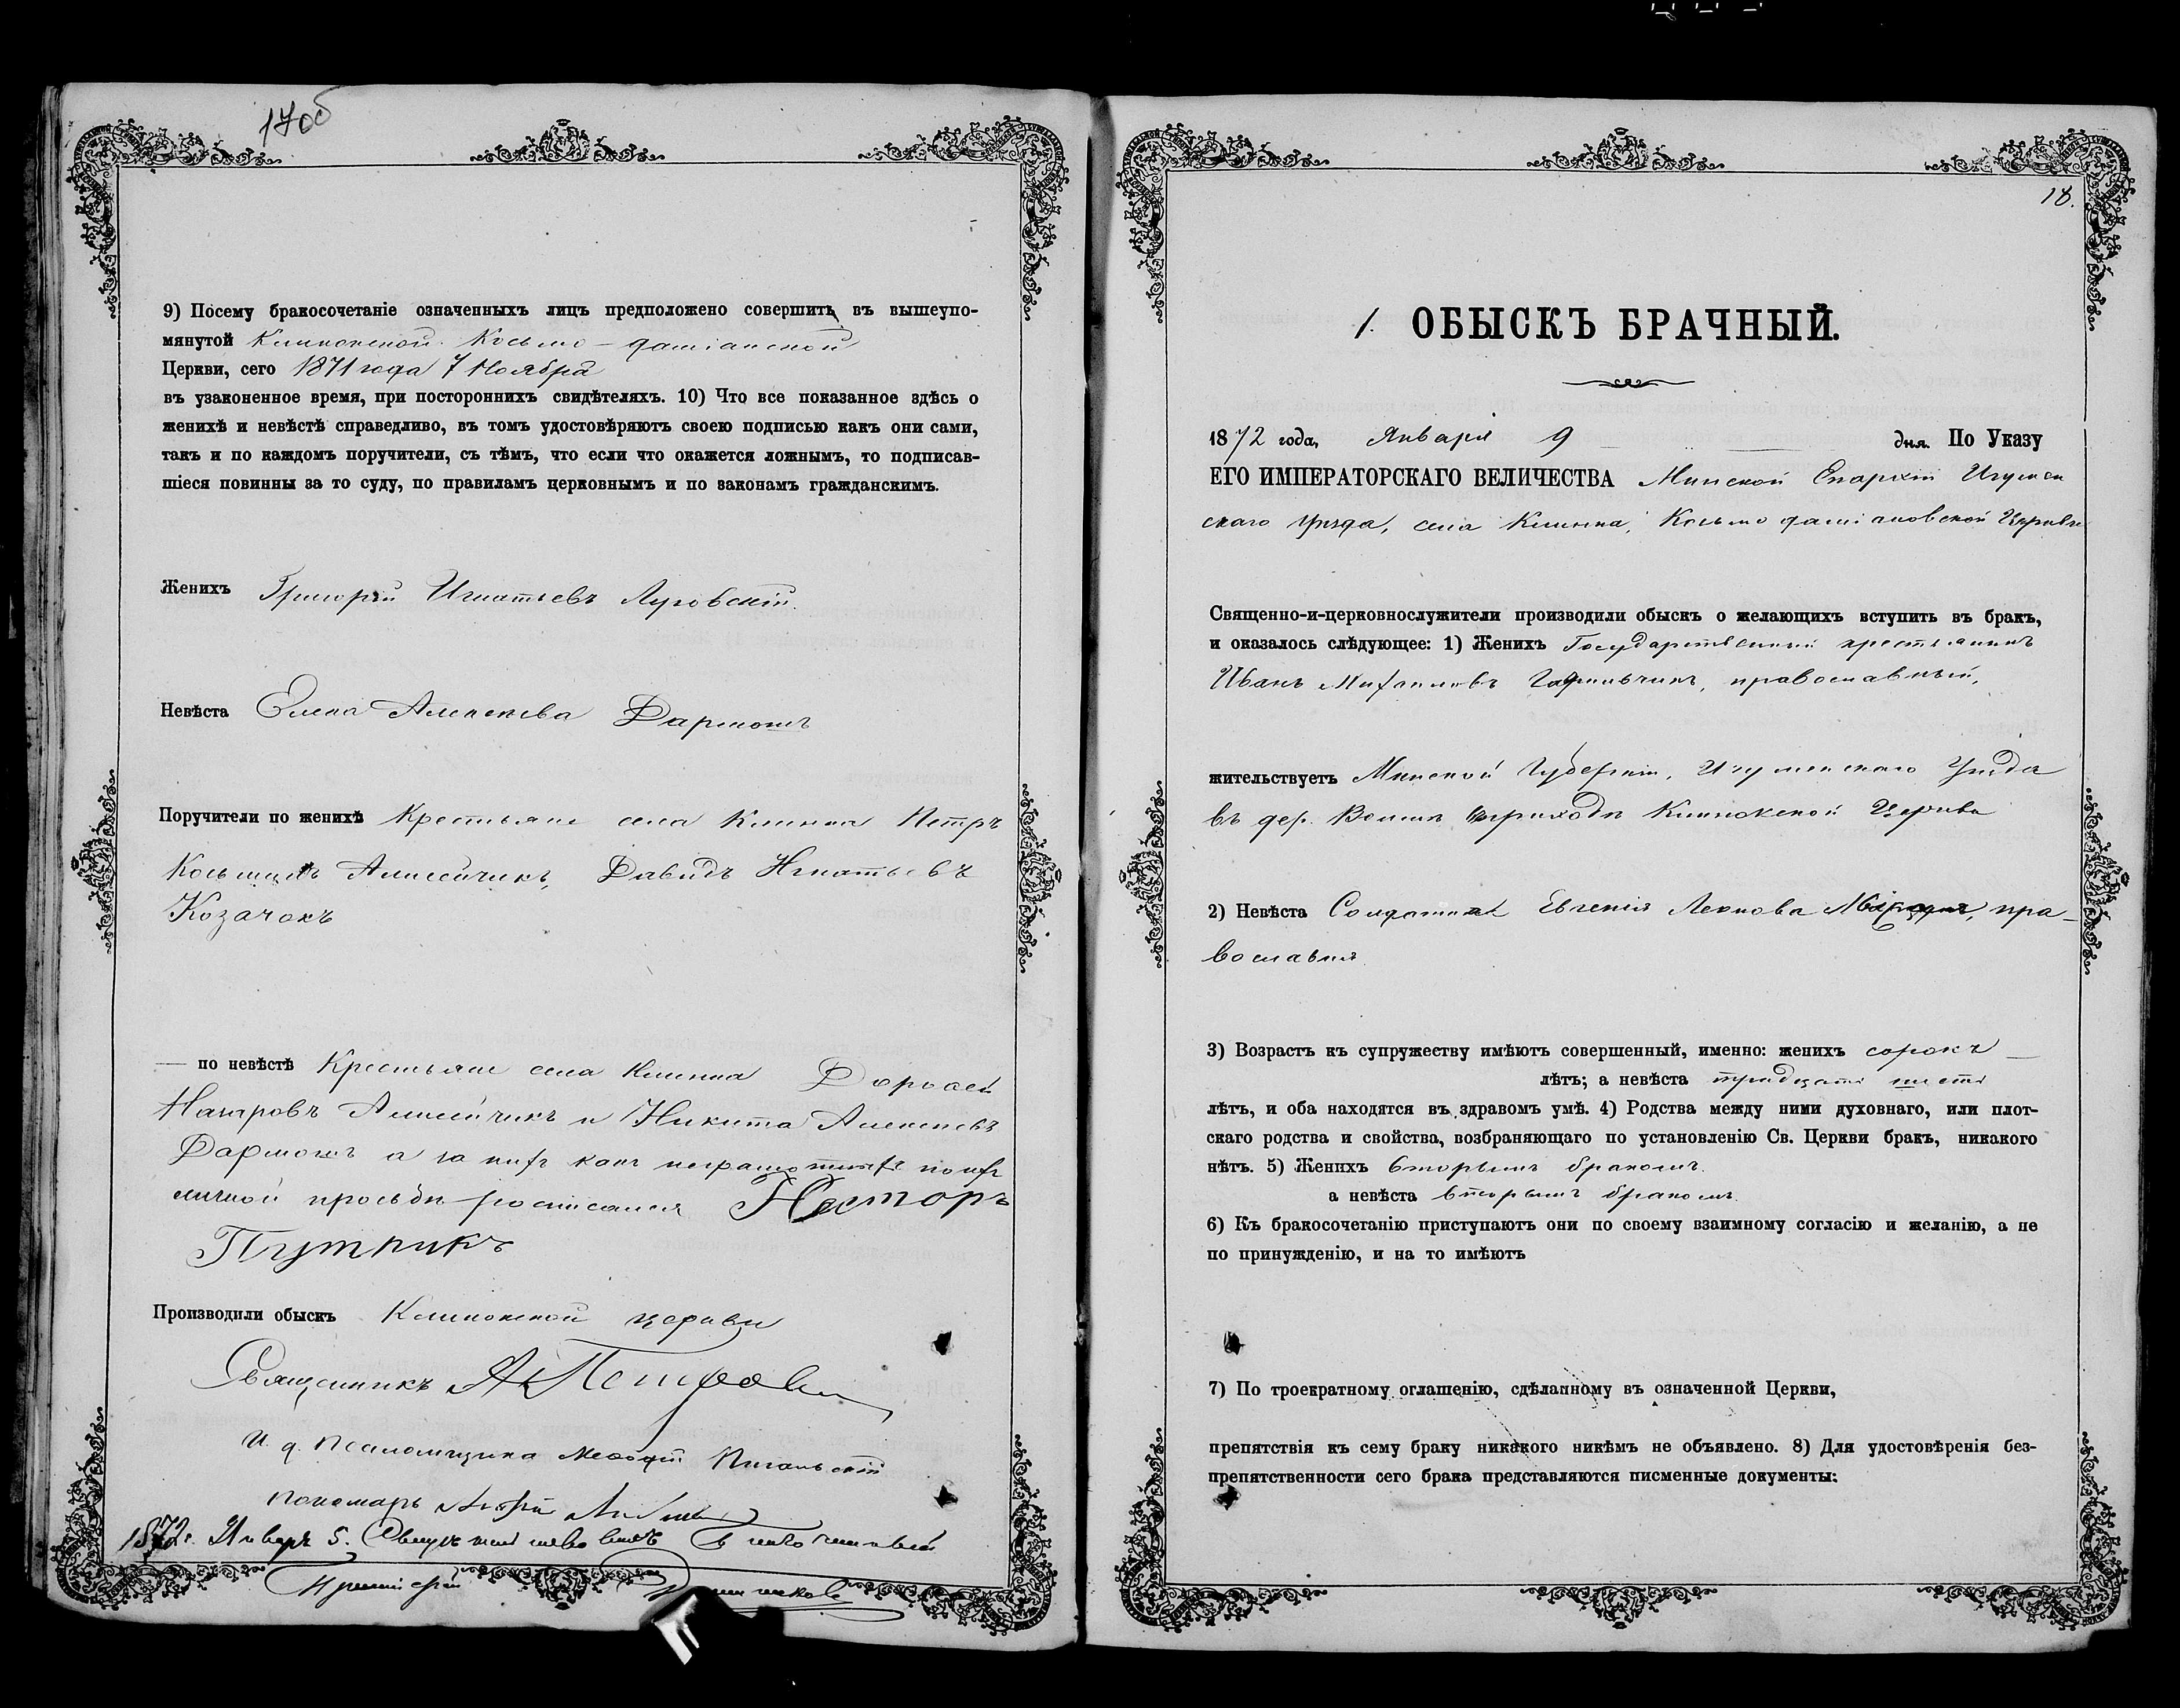 17об
9) Посему бракосочетаніе означенныхъ лицъ предположено совершить въ вышеупо-
мянутой Клинокской Косьмо-даміанской
Церкви, сего 1871 года 7 Ноября
въ узаконенное время, при постороннихъ свидѣтеляхъ. 10) Что все показанное здѣсь о
женихѣ и невѣстѣ справедливо, въ томъ удостовѣряютъ своею подписью какъ они сами,
такъ и по каждомъ поручители, съ тѣмъ, что если что окажется ложнымъ, то подписав-
шіеся повинны за то суду, по правиламъ церковнымъ и по законамъ гражданскимъ.
Женихъ Григорій Игнатьевъ Луговскій.
Невѣста Елена Алексѣева
Поручители по женихѣ Крестьяне села Клинка Петръ
Косьминъ Алисейчикъ, Давидъ Игнатьевъ
Козачокъ
— по невѣстѣ Крестьяне села Клинка Дорофей
Назаровъ Алисейчикъ и Никита Алексѣевъ
а за нихъ какъ неграмотныхъ по ихъ
личной просьбѣ росписался Несторъ
Путникъ
Производили обыскъ Клинокской церкви
Священникъ
И. д. псаломщика
пономарь
1872 г. Январь 5. Благочинный
18.
1. ОБЫСКЪ БРАЧНЫЙ.
1872 года, Января 9 дня. По Указу
ЕГО ИМПЕРАТОРСКАГО ВЕЛИЧЕСТВА Минской Епархіи Игумен
скаго уѣзда, села Клинка, Косьмо даміановской Церкви
Священно-и-церковнослужители производили обыскъ о желающихъ вступить въ бракъ,
и оказалось слѣдующее: 1) Женихъ Государственный крестьянинъ
Иванъ Михаиловъ православный,
жительствуетъ Минской Губерніи, Игуменскаго Уѣзда
въ дер. приходѣ Клинокской Церкви
2) Невѣста Солдатка Евгенія Леонова пра-
вославная
3) Возрастъ къ супружеству имѣютъ совершенный, именно: женихъ сорокъ
лѣтъ; а невѣста тридцати шести
лѣтъ, и оба находятся въ здравомъ умѣ. 4) Родства между ними духовнаго, или плот-
скаго родства и свойства, возбраняющаго по установленію Св. Церкви бракъ, никакого
нѣтъ. 5) Женихъ вторымъ бракомъ.
а невѣста вторымъ бракомъ.
6) Къ бракосочетанію приступаютъ они по своему взаимному согласію и желанію, а не
по принужденію, и на то имѣютъ
7) По троекратному оглашенію, сдѣланному въ означенной Церкви,
препятствія къ сему браку никакого никѣмъ не объявлено. 8) Для удостовѣренія без-
препятственности сего брака представляются писменные документы: